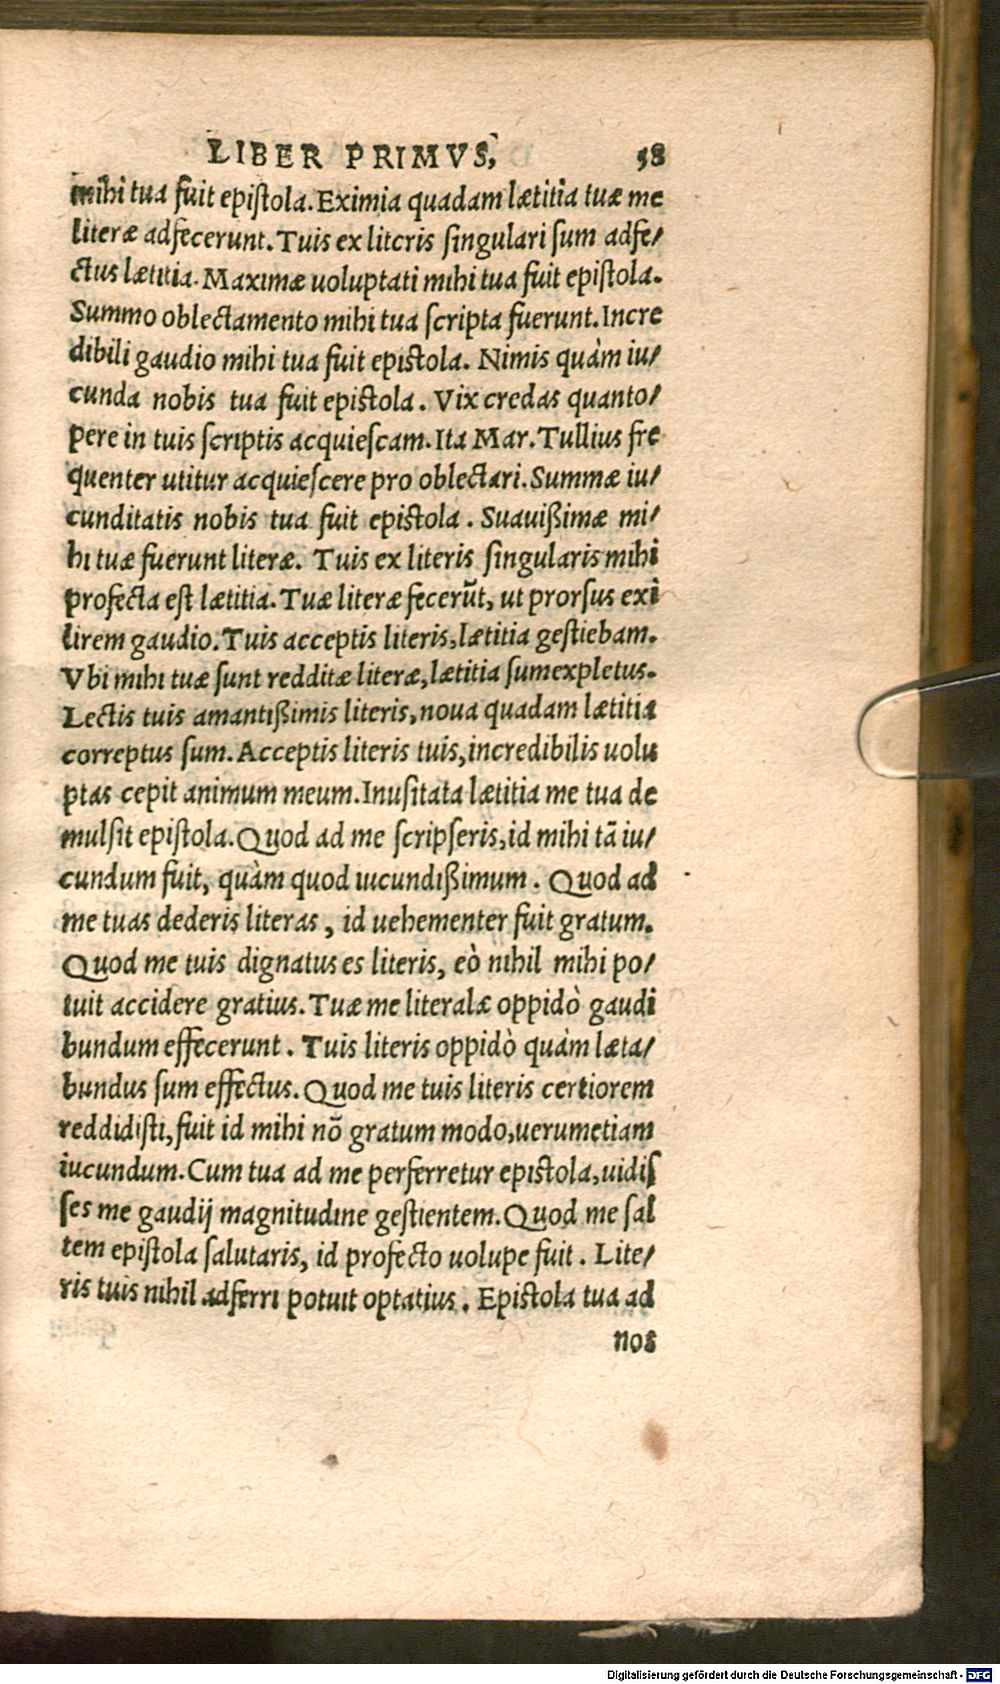 LIBER PRIMVS, 58
mihi tua fuit epiſtola. Eximia quadam lætitia tuæ me
literæ adfecerunt. Tuis ex literis ſingulari ſum adfe/
ctus lætitia. Maximæ uoluptati mihi tua fuit epiſtola.
Summo oblectamento mihi tua ſcripta fuerunt. Incre
dibili gaudio mihi tua fuit epiſtola. Nimis quàm iu/
cunda nobis tua fuit epiſtola. Vix credas quanto/
pere in tuis ſcriptis acquieſcam. Ita Mar. Tullius fre
quenter utitur acquieſcere pro oblectari. Summæ iu/
cunditatis nobis tua fuit epiſtola. Suauißimæ mi/
hi tuæ fuerunt literæ. Tuis ex literis ſingularis mihi
profecta eſt lætitia. Tuæ literæ fecerūt, ut prorſus exi
lirem gaudio. Tuis acceptis literis, lætitia geſtiebam.
Vbi mihi tuæ ſunt redditæ literæ, lætitia ſum expletus.
Lectis tuis amantißimis literis, noua quadam lætitia
correptus ſum. Acceptis literis tuis, incredibilis uolu
ptas cepit animum meum. Inuſitata lætitia me tua de
mulſit epiſtola. Quod ad me ſcripſeris, id mihi tā iu/
cundum fuit, quàm quod iucundißimum. Quod ad
me tuas dederis literas, id uehementer fuit gratum.
Quod me tuis dignatus es literis, eò nihil mihi po/
tuit accidere gratius. Tuæ me literalæ oppidò gaudi
bundum effecerunt. Tuis literis oppidò quàm læta/
bundus ſum effectus. Quod me tuis literis certiorem
reddidiſti, fuit id mihi nō gratum modo, uerumetiam
iucundum. Cum tua ad me perferretur epiſtola, uidiſ
ſes me gaudij magnitudine geſtientem. Quod me ſal
tem epiſtola ſalutaris, id profecto uolupe fuit. Lite/
ris tuis nihil adferri potuit optatius. Epiſtola tua ad
nos
Digitalisierung gefördert durch die Deutsche Forschungsgemeinschaft - DFG